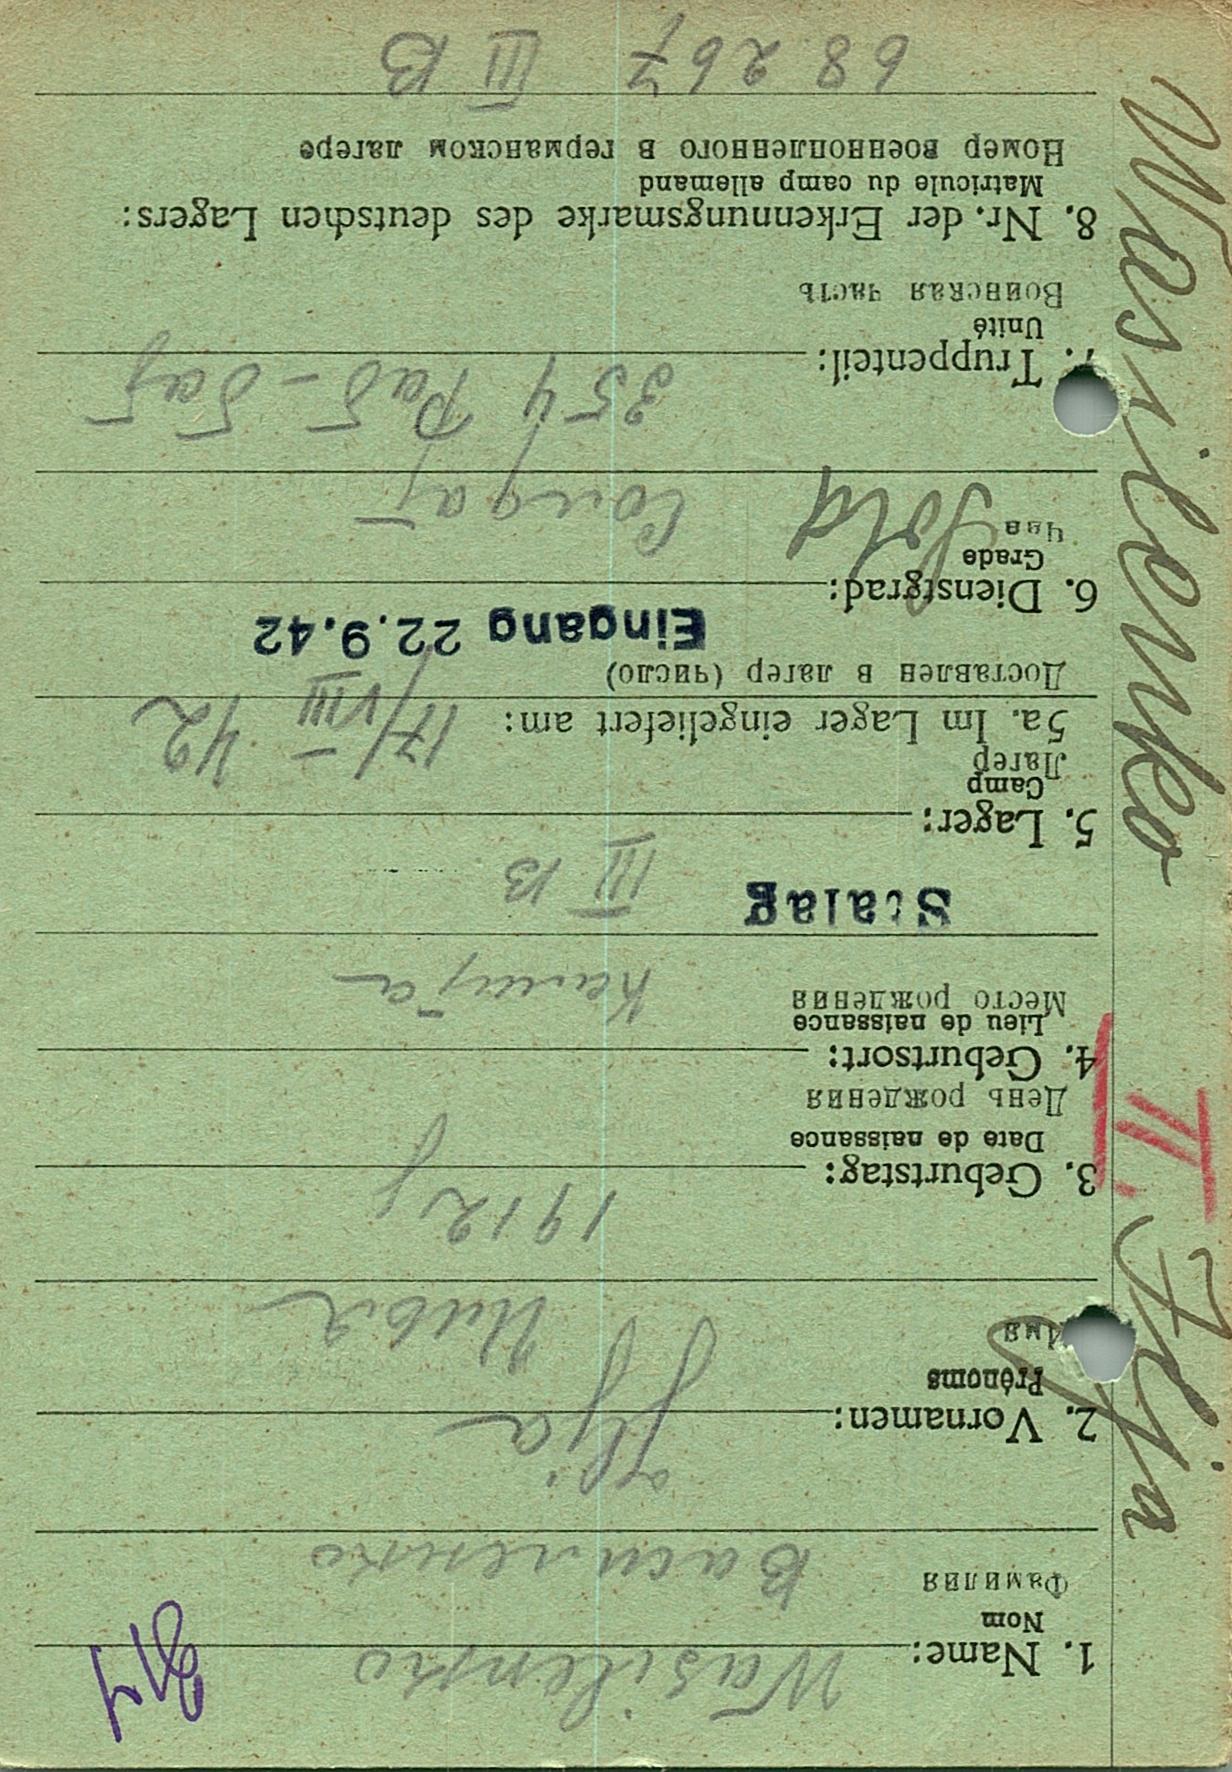 Wasilenko Ilja
II.
1. Name: Wasilenko
Nom
Фамилия Василенко
2. Vornamen: Ilja
Prénoms
Имя Илья
3. Geburtstag: 1912 г
Date de naissance
День рождения
4. Geburtsort:
Lieu de naissance
Место рождения
Stalag III B
5. Lager:
Camp
Лагер
5a. Im Lager eingeliefert am: 17/VIII – 42
Доставлен в лагер (число)
Eingang 22.9.42
6. Dienstgrad:
Grade
Чин Sold Солдат
7. Truppenteil: 354 Раб-Бат
Unité
Воинская часть
8. Nr. der Erkennungsmarke des deutschen Lagers:
Matricule du camp allemand
Номер военнопленного в германском лагере
68267 III B